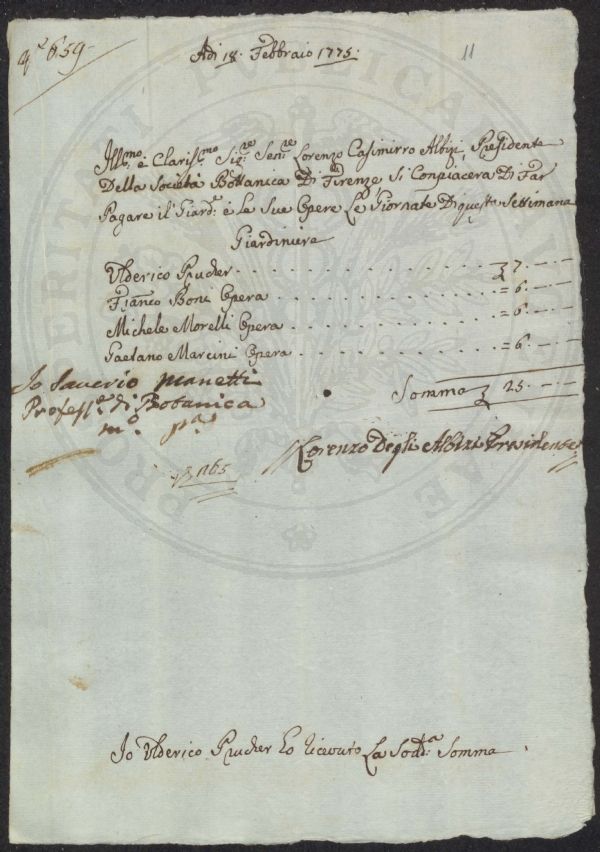 4º 659
Adi 18. Febbraio 1775.
11
Illmo. é Clarismo Sigre Senre Lorenzo Casimirro Albizi Presidente
Della Società Bottanica Di Firenze Si Conpiacera Di Far
Pagare il Giard: é le Sue Opere Le Giornate Di questa Settimana
Giardiniere
Ulderico Prucher . . . . . . . . . 7 . — . —
Franco Boni Opera . . . . . . . . . = 6 . — . —
Michele Morelli Opera . . . . . . . . . = 6 . — . —
Gaetano Marcini Opera . . . . . . . . . = 6 . — . —
Somma 25 . — . —
Io Saverio Manetti
Profess.e di Botanica
mo. pa.
Lorenzo Degli Albizi Presidente
1765
Io Ulderico Prucher ho riceuto La Sodda: Somma
PRO PUBLICA